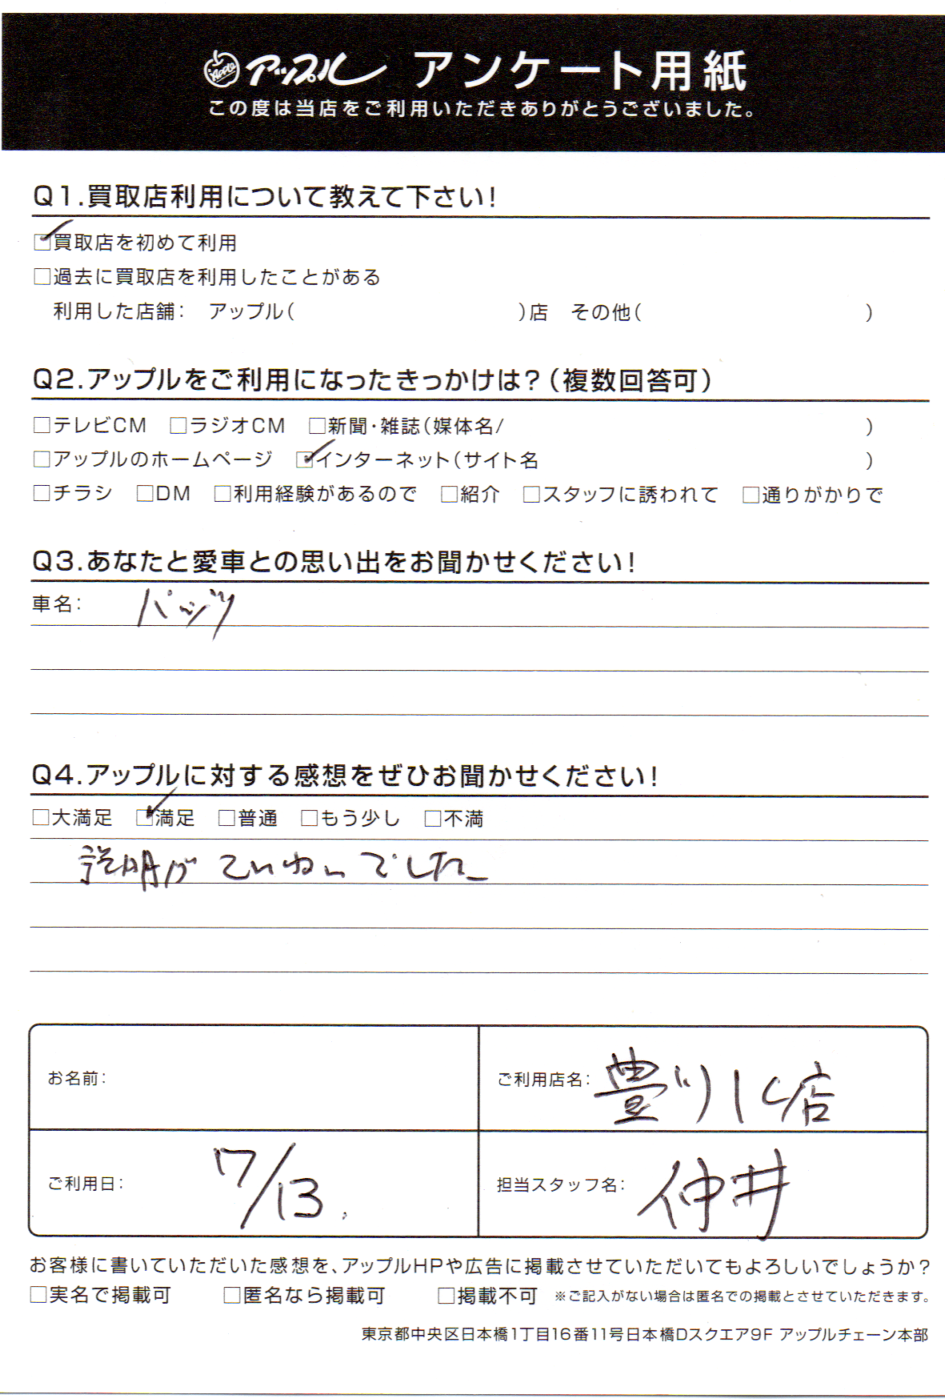 アップル アンケート用紙
この度は当店をご利用いただきありがとうございました。
Q1.買取店利用について教えて下さい!
☑買取店を初めて利用
□過去に買取店を利用したことがある
利用した店舗: アップル( )店 その他( )
Q2.アップルをご利用になったきっかけは?(複数回答可)
□テレビCM □ラジオCM □新聞・雑誌(媒体名/ )
□アップルのホームページ ☑インターネット(サイト名 )
□チラシ □DM □利用経験があるので □紹介 □スタッフに誘われて □通りがかりで
Q3.あなたと愛車との思い出をお聞かせください!
車名:
Q4.アップルに対する感想をぜひお聞かせください!
□大満足 ☑満足 □普通 □もう少し □不満
説明がていねいでした
お名前:
ご利用店名: 豊川IC店
ご利用日: 7/13
担当スタッフ名: 仲井
お客様に書いていただいた感想を、アップルHPや広告に掲載させていただいてもよろしいでしょうか?
□実名で掲載可 □匿名なら掲載可 □掲載不可 ※ご記入がない場合は匿名での掲載とさせていただきます。
東京都中央区日本橋1丁目16番11号日本橋Dスクエア9F アップルチェーン本部